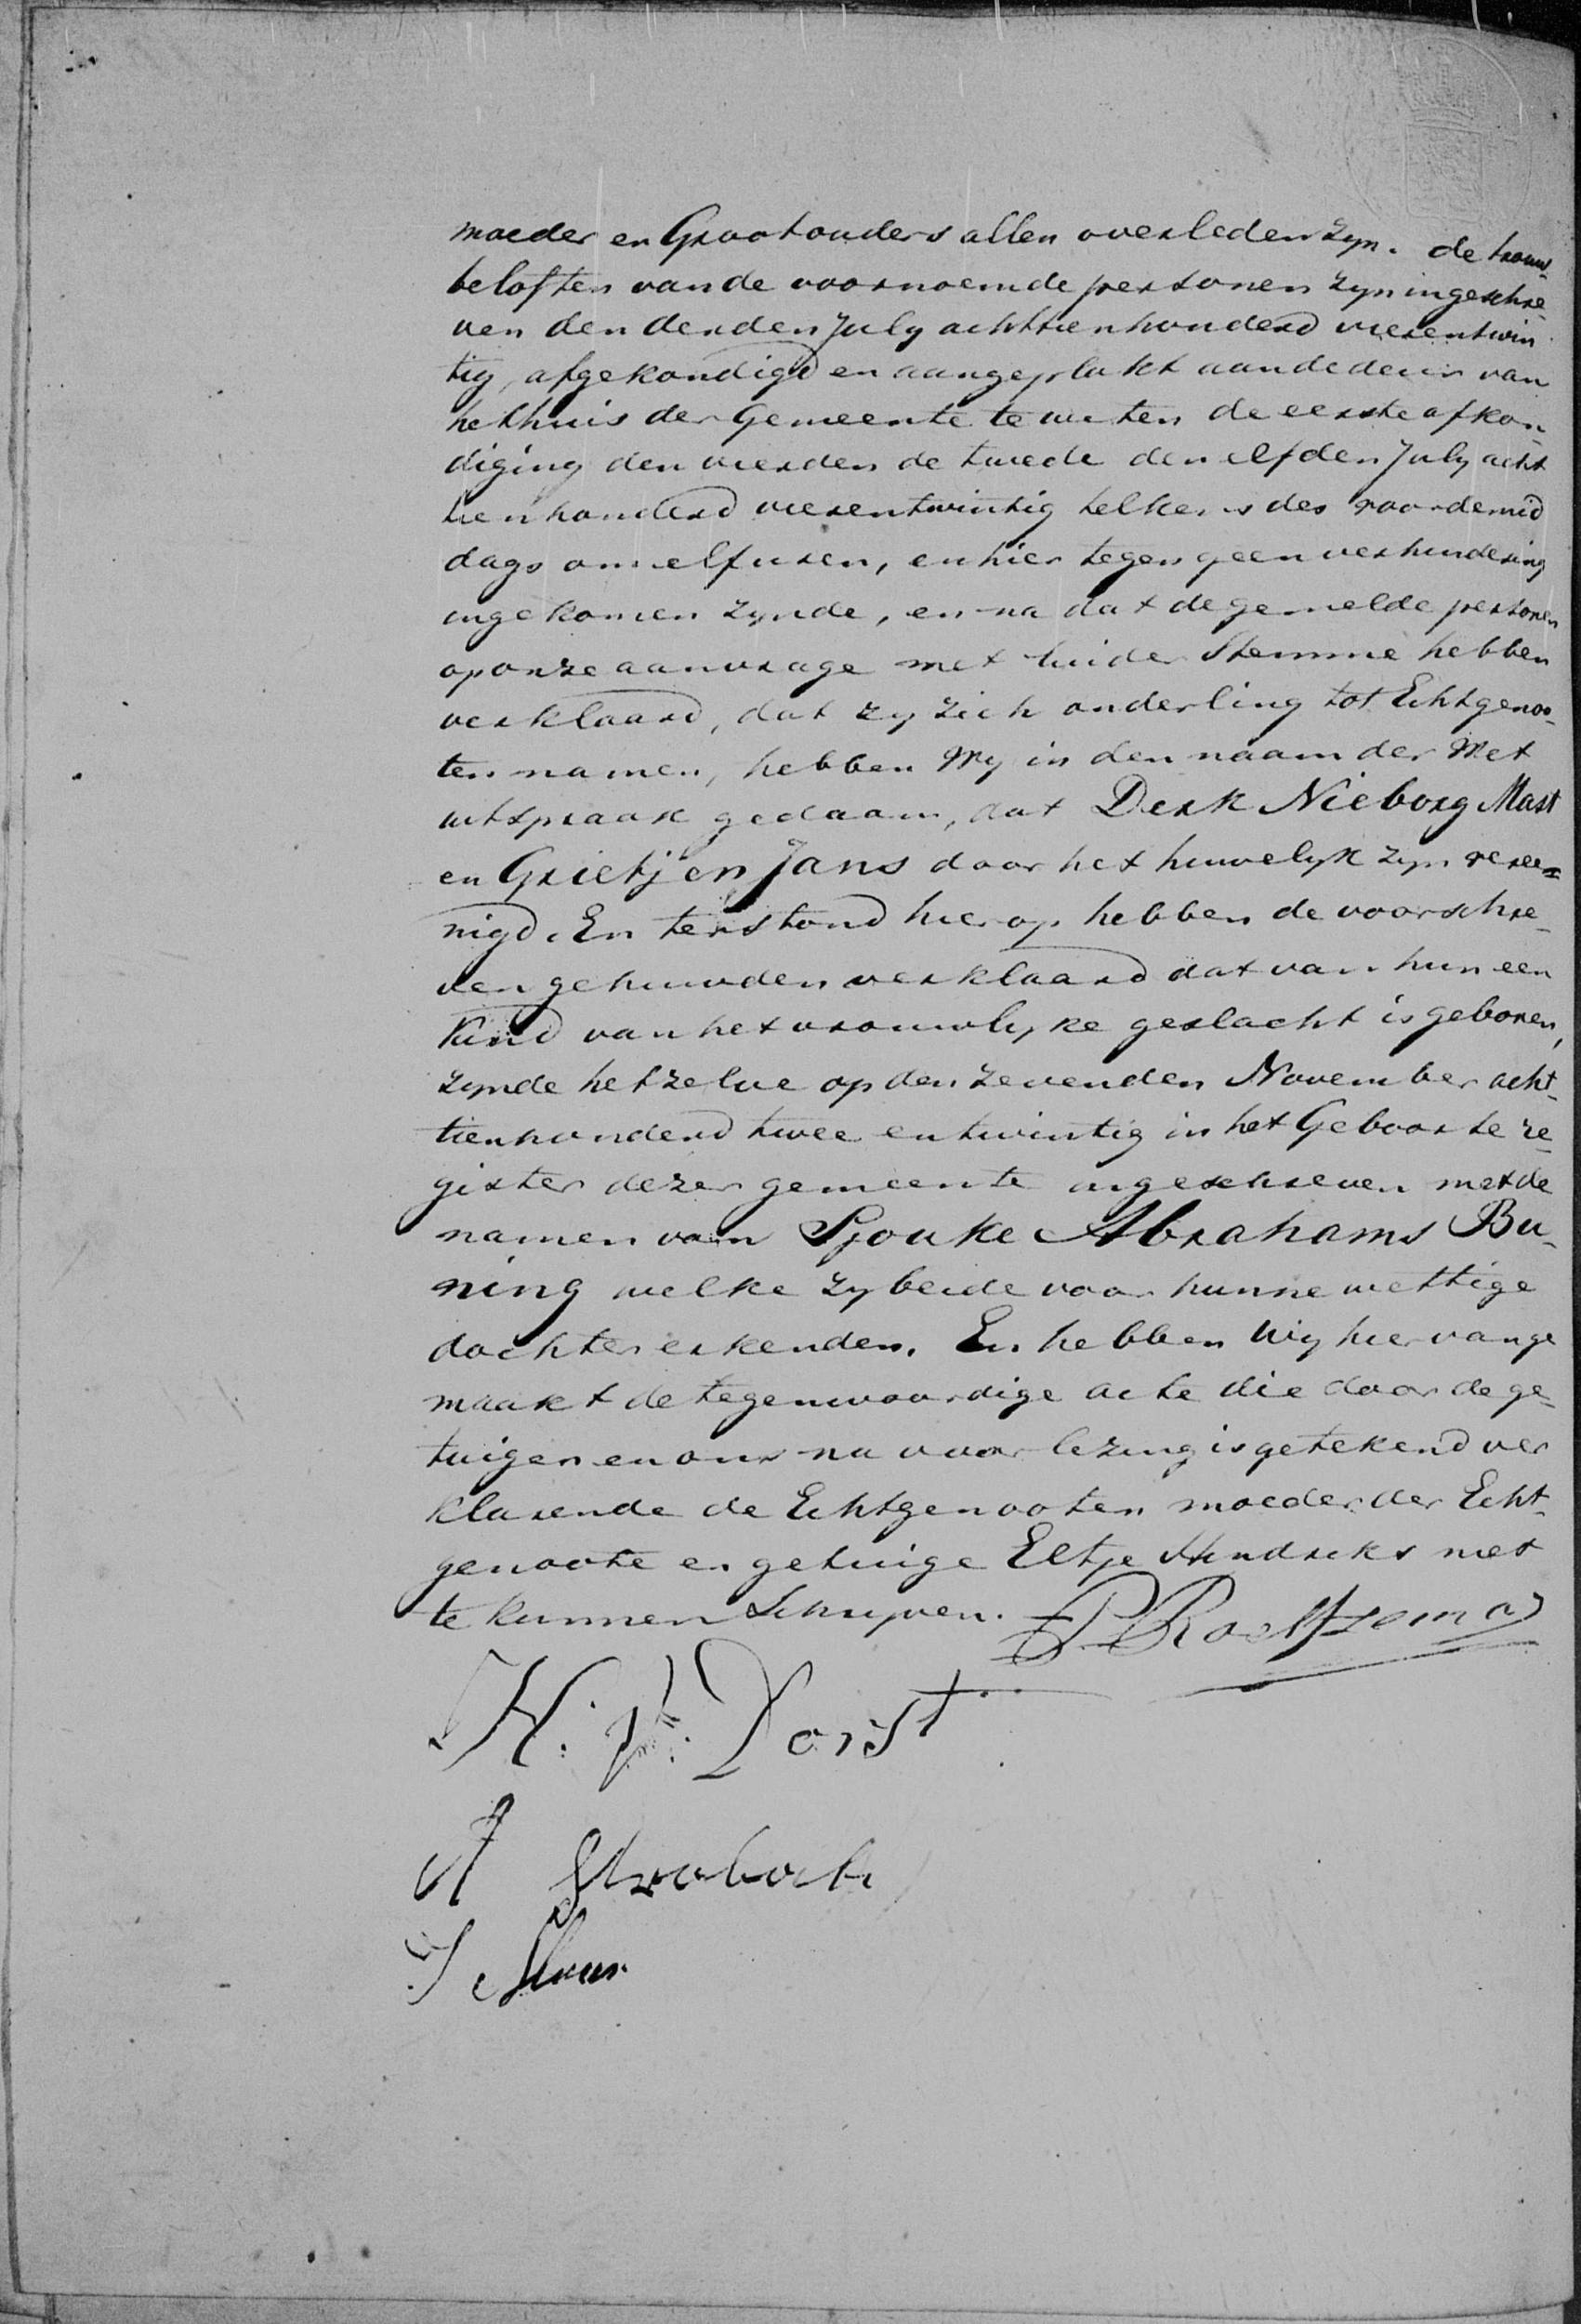 moeder en Grootouders allen overleden zyn. de trouw-
beloften van de voornoemde personen zyn ingeschre-
ven den derden July achttienhonderd vierentwin
tig, afgekondigd en aangeplakt aan de deur van
het huis der Gemeente te weten de eerste afkon-
diging den vierden de twede den elfden July acht
tienhonderd vierentwintig telkens des voordemid
dags om elf uren, en hier tegen geen verhindering
ingekomen zynde, en na dat de gemelde personen
op onze aanvrage met luider Stemme hebben
verklaard, dat zy zich onderling tot Echtgenoo-
ten namen, hebben Wy in den naam der Wet
uitspraak gedaan, dat Derk Nieborg Mast
en Grietjen Jans door het huwelyk zyn veree-
nigd. En terstond hierop hebben de voorschre-
ven gehuwden verklaard dat van hun een
Kind van het vrouwlyke geslacht is geboren,
zynde hetzelve op den zevenden November acht-
tienhonderd twee en twintig in het Geboorte re-
gister dezer gemeente ingeschreven met de
namen van Sjouke Abrahams Bu-
ning welke zy beide voor hunne wettige
dochter erkenden. En hebben Wy hier van ge
maakt de tegenwoordige acte die door de ge-
tuigen en ons na voorlezing is getekend ver
klarende de Echtgenooten moeder der Echt-
genoote en getuige Eltje Hindriks niet
te kunnen Schryven.
H. Dorst